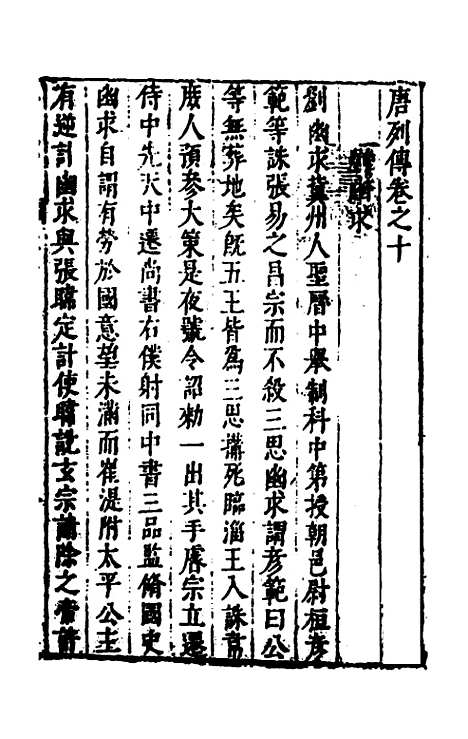 唐列傳卷之十
劉幽求
劉幽求冀州人聖曆中舉制科中第授朝邑尉桓彥
範等誅張易之昌宗而不殺三思幽求謂彥範曰公
等無葬地矣旣五王皆爲三思搆死臨淄王入誅韋
庶人預參大策是夜號令詔勑一出其手睿宗立遷
侍中先天中遷尚書右僕射同中書三品監脩國史
幽求自謂有勞於國意望未滿而崔湜附太平公主
有逆計幽求與張暐定計使暐説玄宗請除之帝許